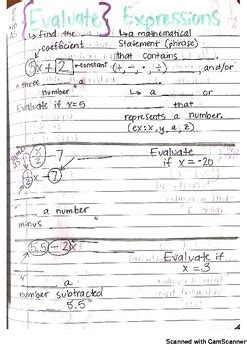 {Evaluate} Expressions
↳ find the
↳ a mathematical
statement (phrase)
that contains
coefficient
3x + 2 → constant
(+, −, ·, ÷)
and/or
"three
number
↳ a ____ or
____ that
represents a number.
(ex: x, y, a, z)
Evaluate if x=5
x/2 - 7
Evaluate
if x = -20
½x - 7
____ a number
minus ____"
5.5 - 2x
Evaluate if
x = 3
____ a
number subtracted
____ 5.5"
Scanned with CamScanner